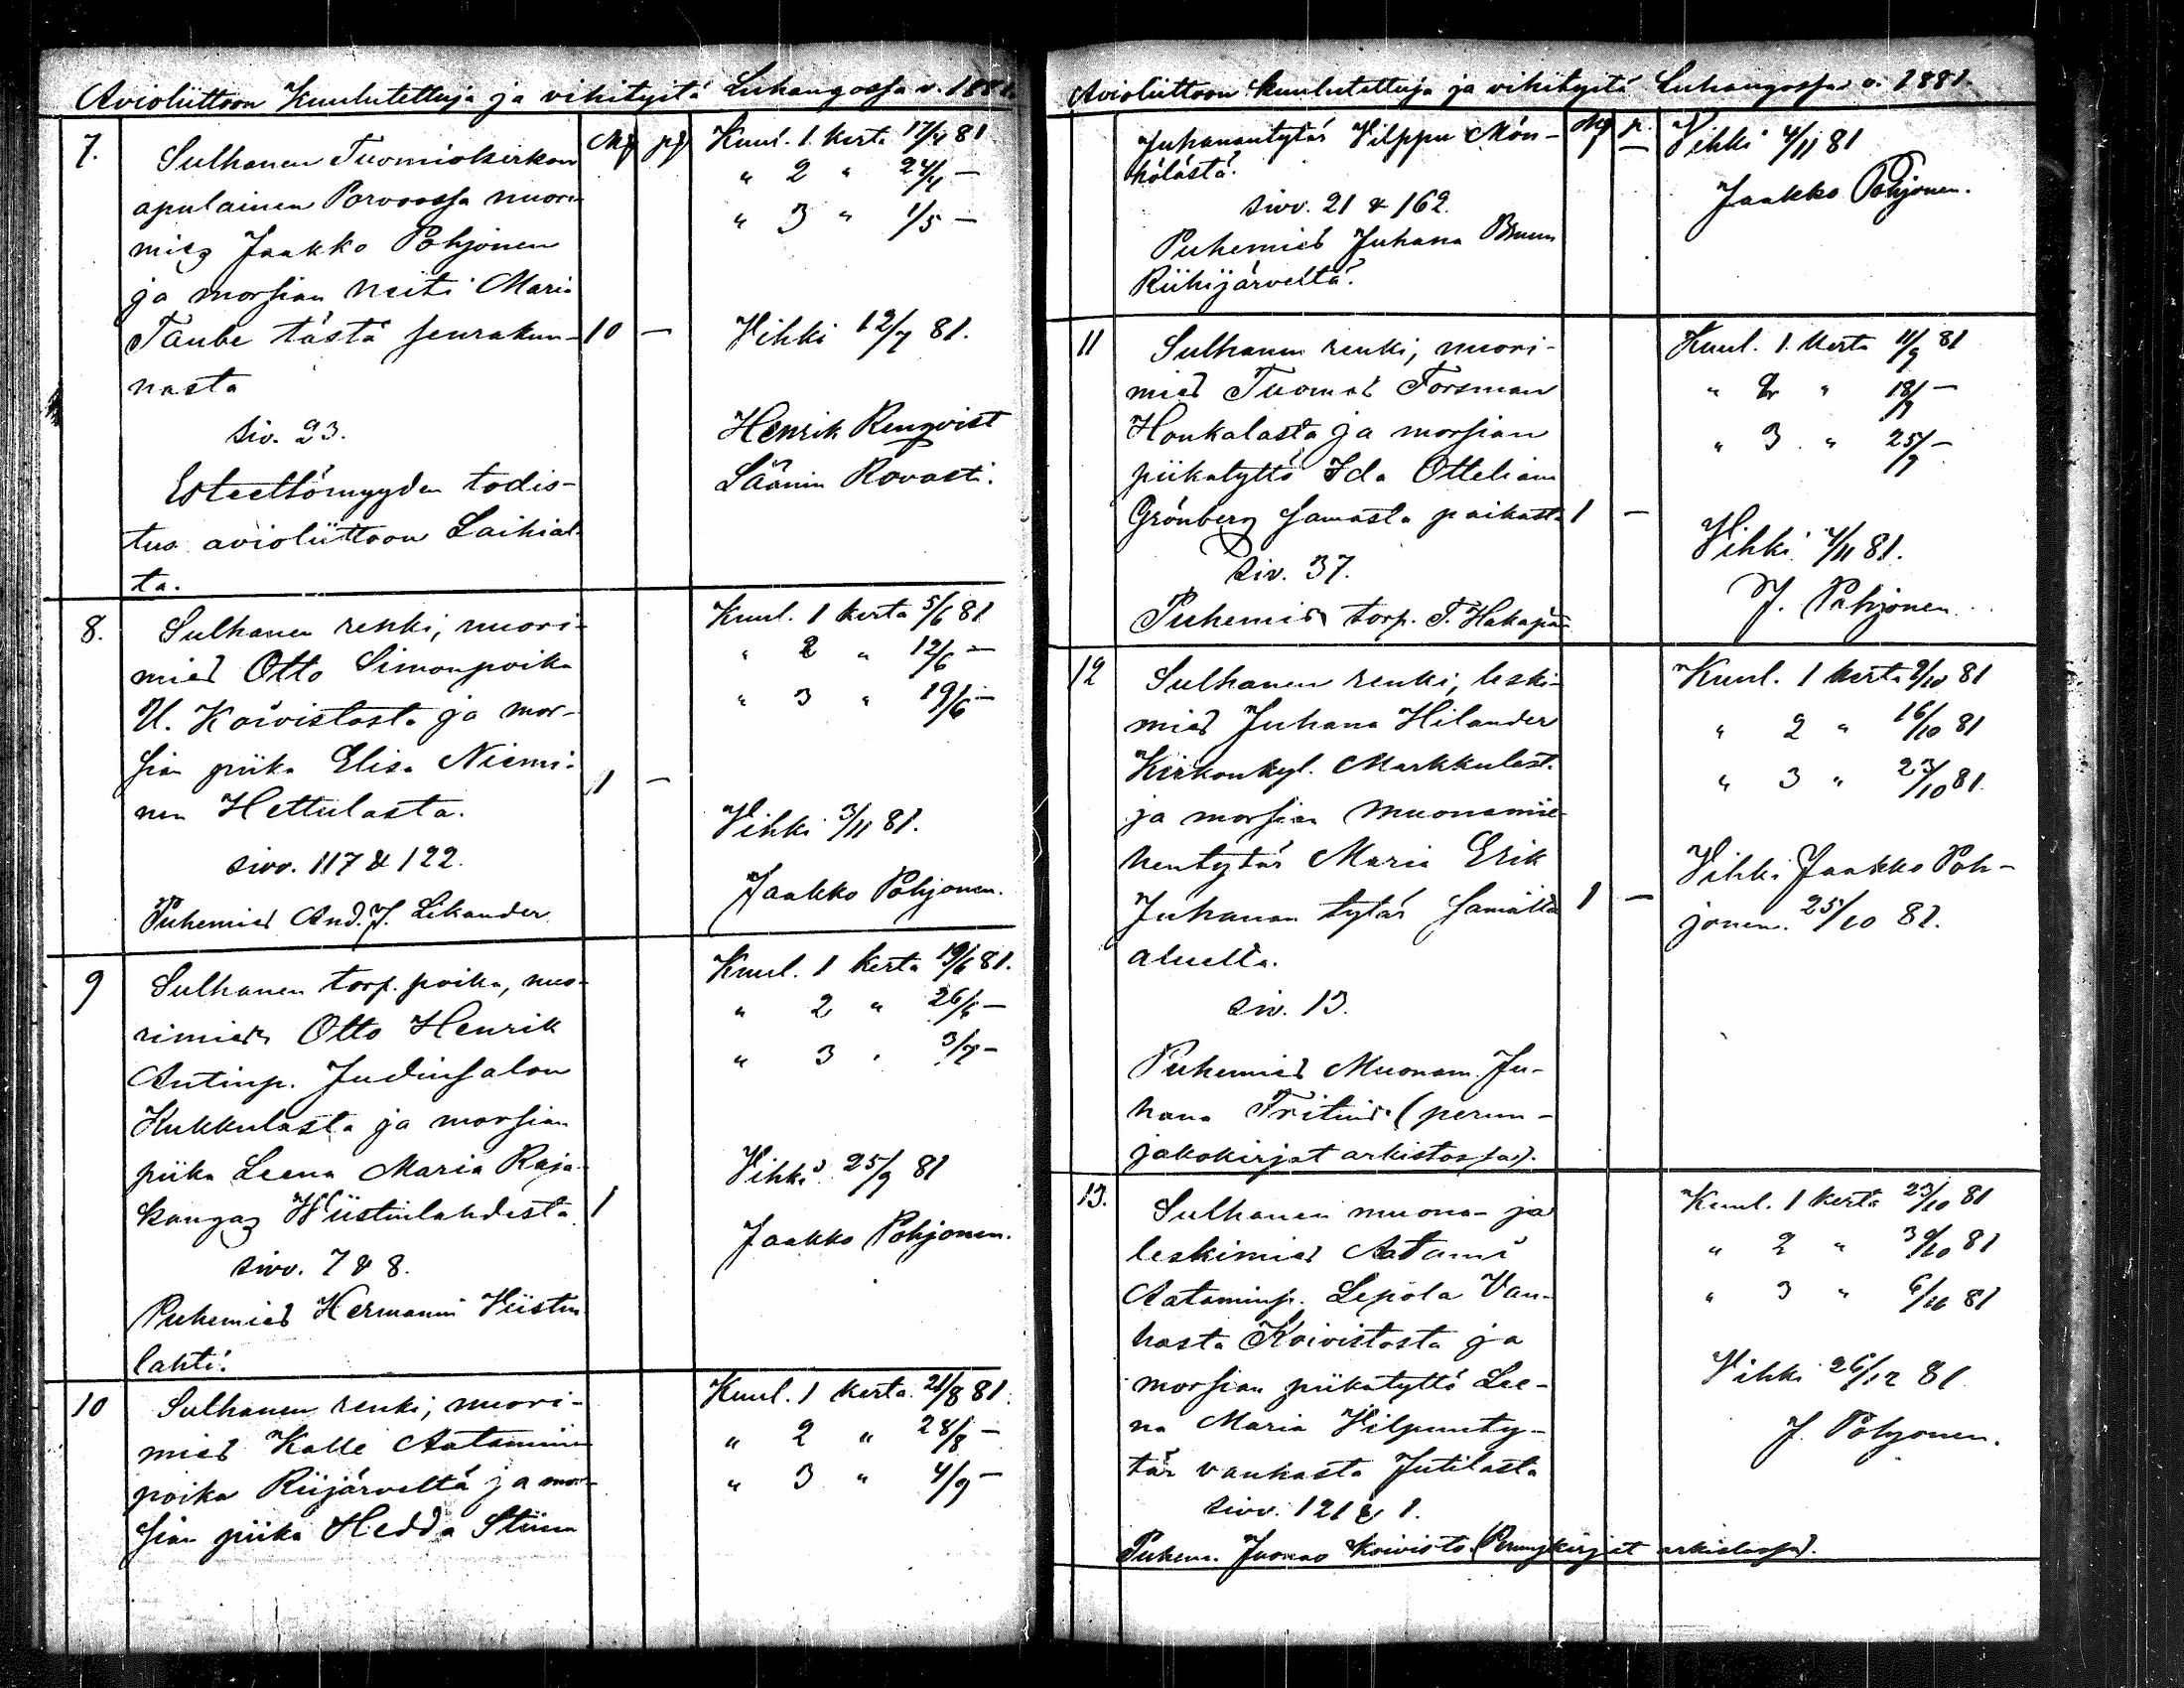 Avioliittoon Kuulutettuja ja vihityitä Luhangossa v. 1881.
Mk pj
7. Sulhanen Tuomiokirkon
apulainen Porvoossa nuori
mies Jaakko Pohjonen
ja morsian neiti Maria
Taube tästä seurakun- 10 —
nasta
siv. 23.
Esteettömyyden todis-
tus avioliittoon Laihial-
ta.
Kuul. 1. kerta 17/4 81
" 2 " 24/4 —
" 3 " 1/5 —
Vihki 12/7 81.
Henrik Renqvist
Läänin Rovasti.
8. Sulhanen renki, nuori-
mies Otto Simonpoika
U. Koivistosta ja mor-
sian piika Elisa Niemi-
nen Hettulasta. 1 —
sivv. 117 & 122.
Puhemies And. J. Likander
Kuul. 1 kerta 5/6 81
" 2 " 12/6 —
" 3 " 19/6 —
Vihki 3/11 81.
Jaakko Pohjonen.
9 Sulhanen torp. poika, nuo-
rimies Otto Henrik
Antinp. Judinsalon
Kukkulasta ja morsian
piika Leena Maria Raja-
kangas Wiistinlahdesta 1
sivv. 7 & 8.
Puhemies Hermanni Viistin
lahti.
Kuul. 1 kerta 19/6 81.
" 2 " 26/6 —
" 3 " 3/7 —
Vihki 25/9 81
Jaakko Pohjonen.
10 Sulhanen renki, nuori-
mies Kalle Aatamin
poika Riijärveltä ja mor-
sian piika Hedda Stiina
Kuul. 1 kerta 21/8 81.
" 2 " 28/8 —
" 3 " 4/9 —
Avioliittoon kuulutettuja ja vihityitä Luhangossa v. 1881.
Mk p.
Juhanantytär Vilppu Mön- 1 —
kölästä.
sivv. 21 & 162.
Puhemies Juhana
Riihijärveltä.
Vihki 4/11 81
Jaakko Pohjonen.
11 Sulhanen renki, nuori-
mies Tuomas Forsman
Honkalasta ja morsian
piikatyttö Ida Otteliana
Grönberg samasta paikasta 1 —
siv. 37.
Puhemies torp. T. Hakapää
Kuul. 1. kerta 11/9 81
" 2 " 18/9 —
" 3 " 25/9 —
Vihki 4/11 81.
J. Pohjonen.
12 Sulhanen renki, leski-
mies Juhana Hilander
Kirkonkyl. Markkulast.
ja morsian muonamie-
hentytär Maria Erik
Juhanan tytär samalta 1 —
aluelta.
siv. 13.
Puhemies Muonam. Ju-
hana Fritius (perun-
jakokirjat arkistossa).
Kuul. 1 kerta 9/10 81
" 2 " 16/10 81
" 3 " 23/10 81.
Vihki Jaakko Poh-
jonen. 25/10 81.
13. Sulhanen muona- ja
leskimies Aatami
Aataminp. Lepola Van-
hasta Koivistosta ja
morsian piikatyttö Lee-
na Maria Vilpunty-
tär vanhasta Jutilasta
sivv. 121 & 1.
Puhem. Joonas Koivisto. (Perunjkirjat arkistossa).
Kuul. 1 kerta 23/10 81
" 2 " 30/10 81
" 3 " 6/11 81
Vihki 26/12 81
J. Pohjonen.